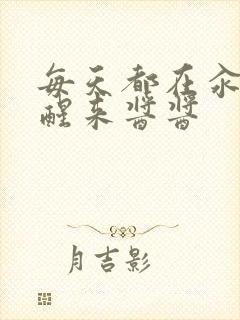 每天都在汆
醒来酱酱
月吉影